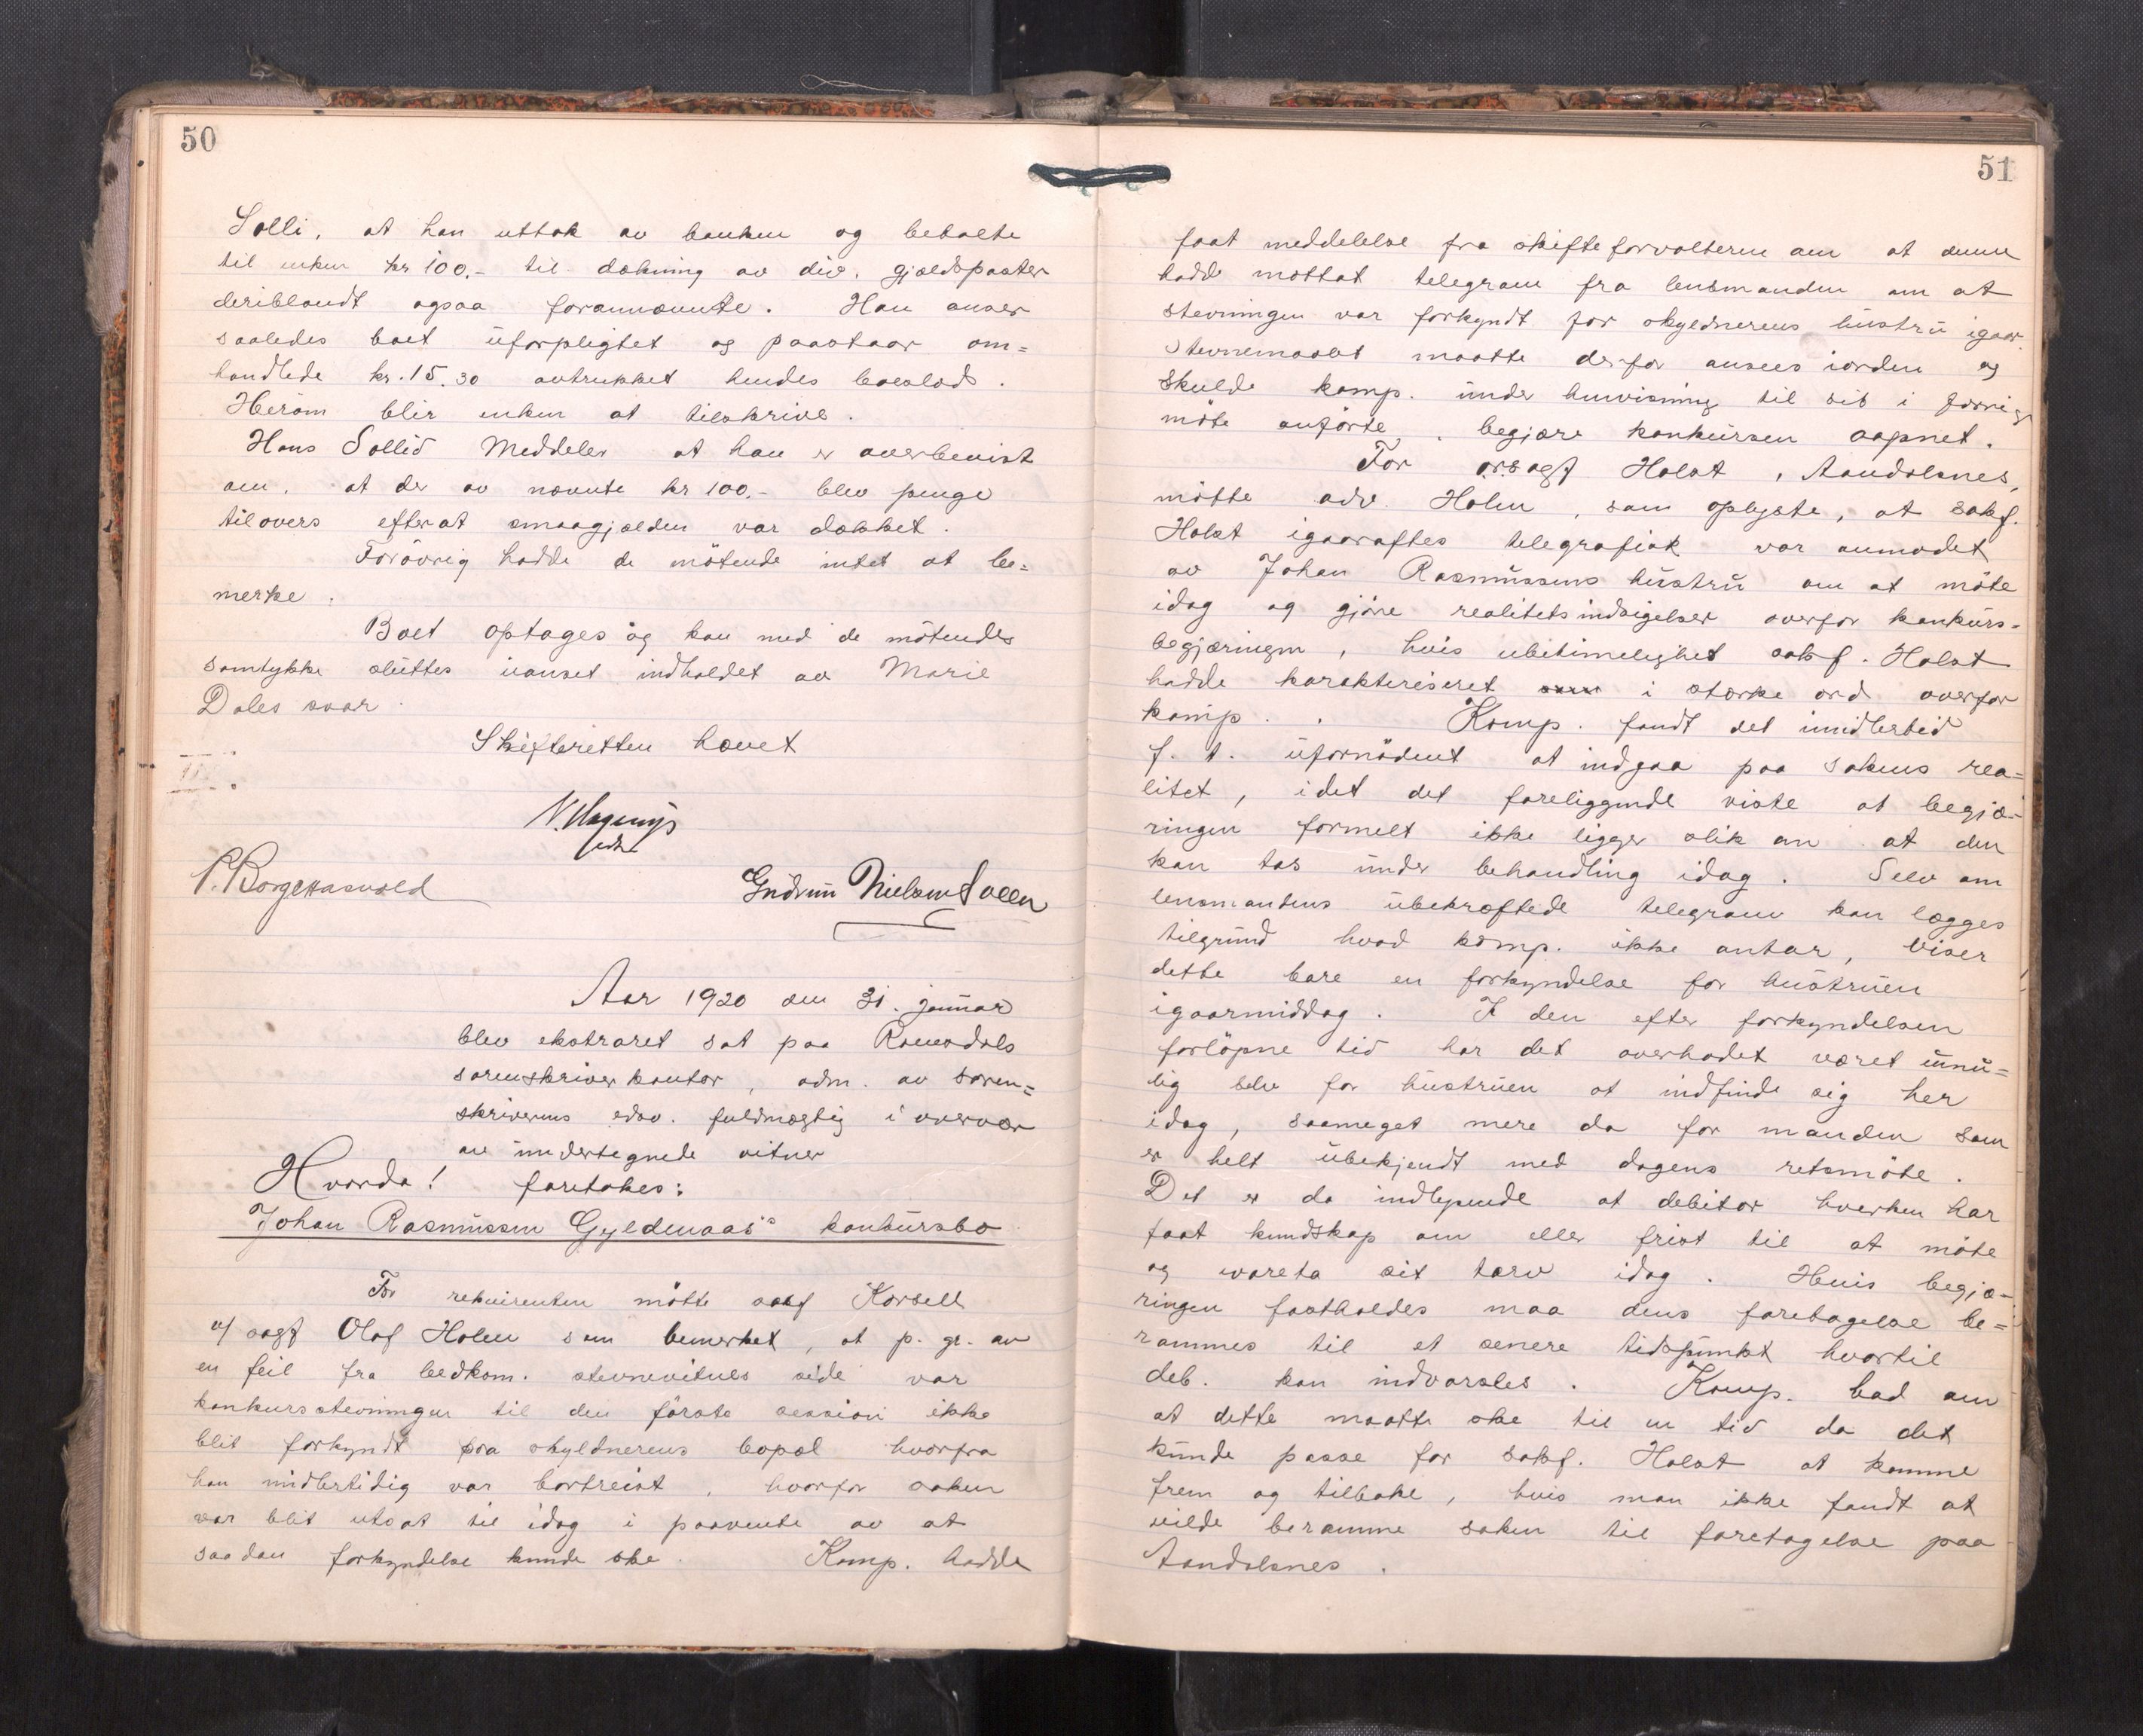 50
Solli, at han uttok av banken og betalte
til enken kr 100.- til dækning av div. gjældsposter
deriblandt ogsaa forannævnte. Han anser
saaledes boet uforpligtet og paastaar om=
handlede kr. 15.30 avtrukket hendes boeslod.
Herom blir enken at tilskrive.
Hans Sollid Meddeler at han er overbevist
om, at der av nævnte kr 100.- blev penge
tilovers efterat smaagjælden var dækket.
Forövrig hadde de mötende intet at be=
merke.
Boet optages og kan med de mötendes
samtykke sluttes uanset indholdet av Marie
Dales svar.
Skifteretten hævet
P. Borgehasvold
Gudrun Nielsen
Aar 1920 den 31. januar
blev ekstraret sat paa Romsdals
sorenskriverkontor, adm. av soren=
skriverens edsv. fuldmægtig i overvær
av undertegnede vitner
Hvorda! foretokes:
Johan Rasmussen Gyldenaas's konkursbo
For rekvirenten mötte sakf Korsell
v/ sagf Olaf Holm som bemerket, at p. gr. av
en feil fra vedkom. stevnevitnes side var
konkursstevningen til den förste session ikke
blit forkyndt paa skyldnerens bopæl hvorfra
han midlertidig var bortreist, hvorfor saken
var blit utsat til idag i paavente av at
saadan forkyndelse kunde ske. Komp. hadde
51
faat meddelelse fra skifteforvalteren om at denne
hadde mottat telegram fra lensmanden om at
stevningen var forkyndt for skyldnerens hustru igaar.
Stevnemaalet maatte derfor ansees iorden og
skulde komp. under henvisning til sit i forrige
möte anförte, begjære konkursen aapnet.
For orsagf Holst, Aandalsnes,
mötte adv. Holm, som oplyste, at sakf.
Holst igaaraftes telegrafisk var anmodet
av Johan Rasmussens hustru om at möte
idag og gjöre realitetsindsigelser overfor konkurs-
begjæringen, hvis ubetimelighet sakf. Holst
hadde karakteriseret i sterke ord overfor
komp. . Komp. fandt det imidlertid
f. t. ufornödent at indgaa paa sakens rea=
litet, idet det foreliggende viste at begjæ-
ringen formelt ikke ligger slik an at den
kan tas under behandling idag. Selv om
lensmandens ubekræftede telegram kan lægges
tilgrund hvad komp. ikke antar, viser
dette bare en forkyndelse for hustruen
igaarmiddag. I den efter forkyndelsen
forlöpne tid har det overhodet været umu=
lig selv for hustruen at indfinde sig her
idag, saameget mere da for manden som
er helt ubekjendt med dagens retsmöte.
Det er da indlysende at debitor hverken har
faat kundskap om eller frist til at möte
og vareta sit tarv idag. Hvis begjæ-
ringen fastholdes maa dens foretagelse be=
rammes til et senere tidspunkt hvortil
deb. kan indvarsles. Komp. bad om
at dette maatte ske til en tid da det
kunde passe for sakf. Holst at komme
frem og tilbake, hvis man ikke fandt at
vilde beramme saken til foretagelse paa
Aandalsnes.